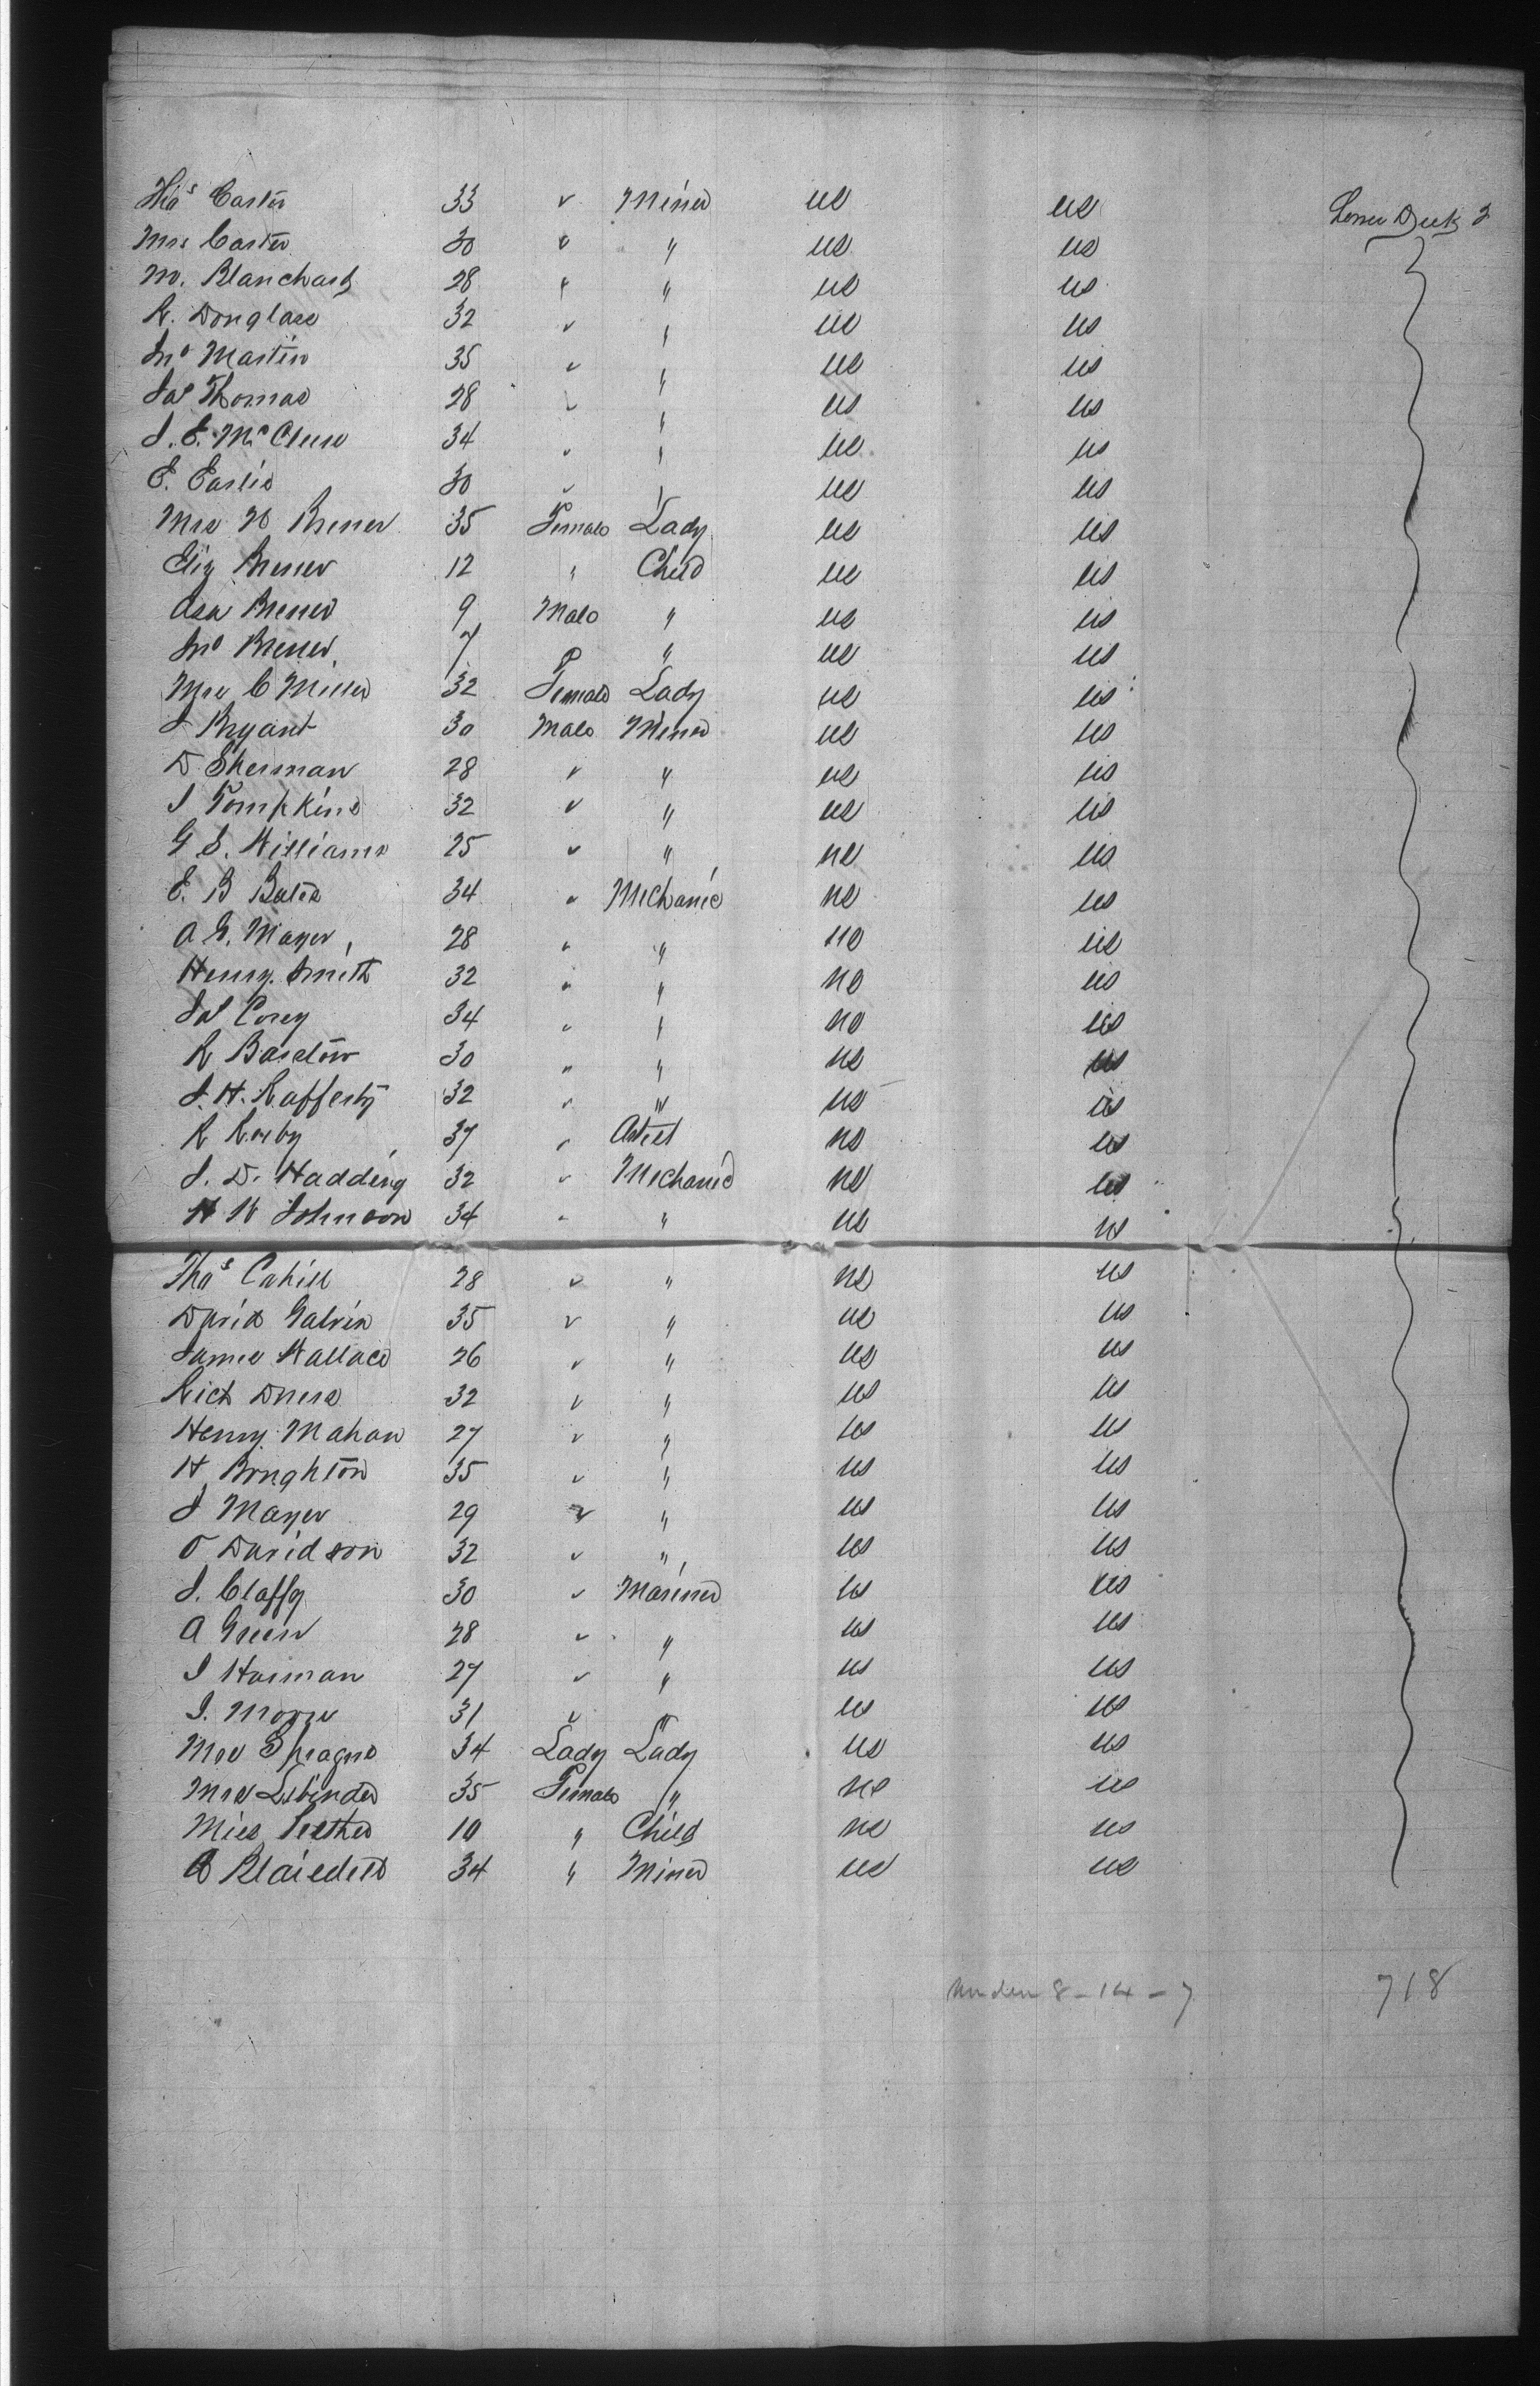 Thos Carter 33 " Miner US US Lower Deck 2
Mrs Carter 30 " " US US
M. Blanchard 28 " " US US
R. Douglass 32 " " US US
Jno Martin 35 " " US US
Jas Thomas 28 " " US US
J. E. McClure 34 " " US US
E. Earlie 30 " " US US
Mrs Bruner 35 Female Lady US US
Eliz Bruner 12 " Child US US
Asa Bruner 9 Male " US US
Jno Bruner 7 " US US
Mrs C Miller 32 Female Lady US US
J Bryant 30 Male Miner US US
D. Sherman 28 " " US US
J Tompkins 32 " " US US
G. S. Williams 25 " " US US
E. B Bates 34 " Mechanic US US
A G. Mayer 28 " " US US
Henry Smith 32 " " US US
Jas Corey 34 " " US US
R Barstow 30 " " US US
J. H. Rafferty 32 " " US US
R 37 " Artist US US
J. D. Hadding 32 " Mechanic US US
H W Johnson 34 " " US US
Thos Cahill 28 " " US US
David Galvin 35 " " US US
James Wallace 26 " " US US
Rich 32 " " US US
Henry Mahan 27 " " US US
H. Boughton 35 " " US US
J Mayer 29 " " US US
O Davidson 32 " " US US
J. Claffy 30 " Mariner US US
A Green 28 " " US US
J Harman 27 " " US US
J. Moore 31 " " US US
Mrs Sprague 34 Lady Lady US US
Mrs 35 Female " US US
Miss 10 " Child US US
Blaisdell 34 " Miner US US
Under 8 - 14 - 7 718